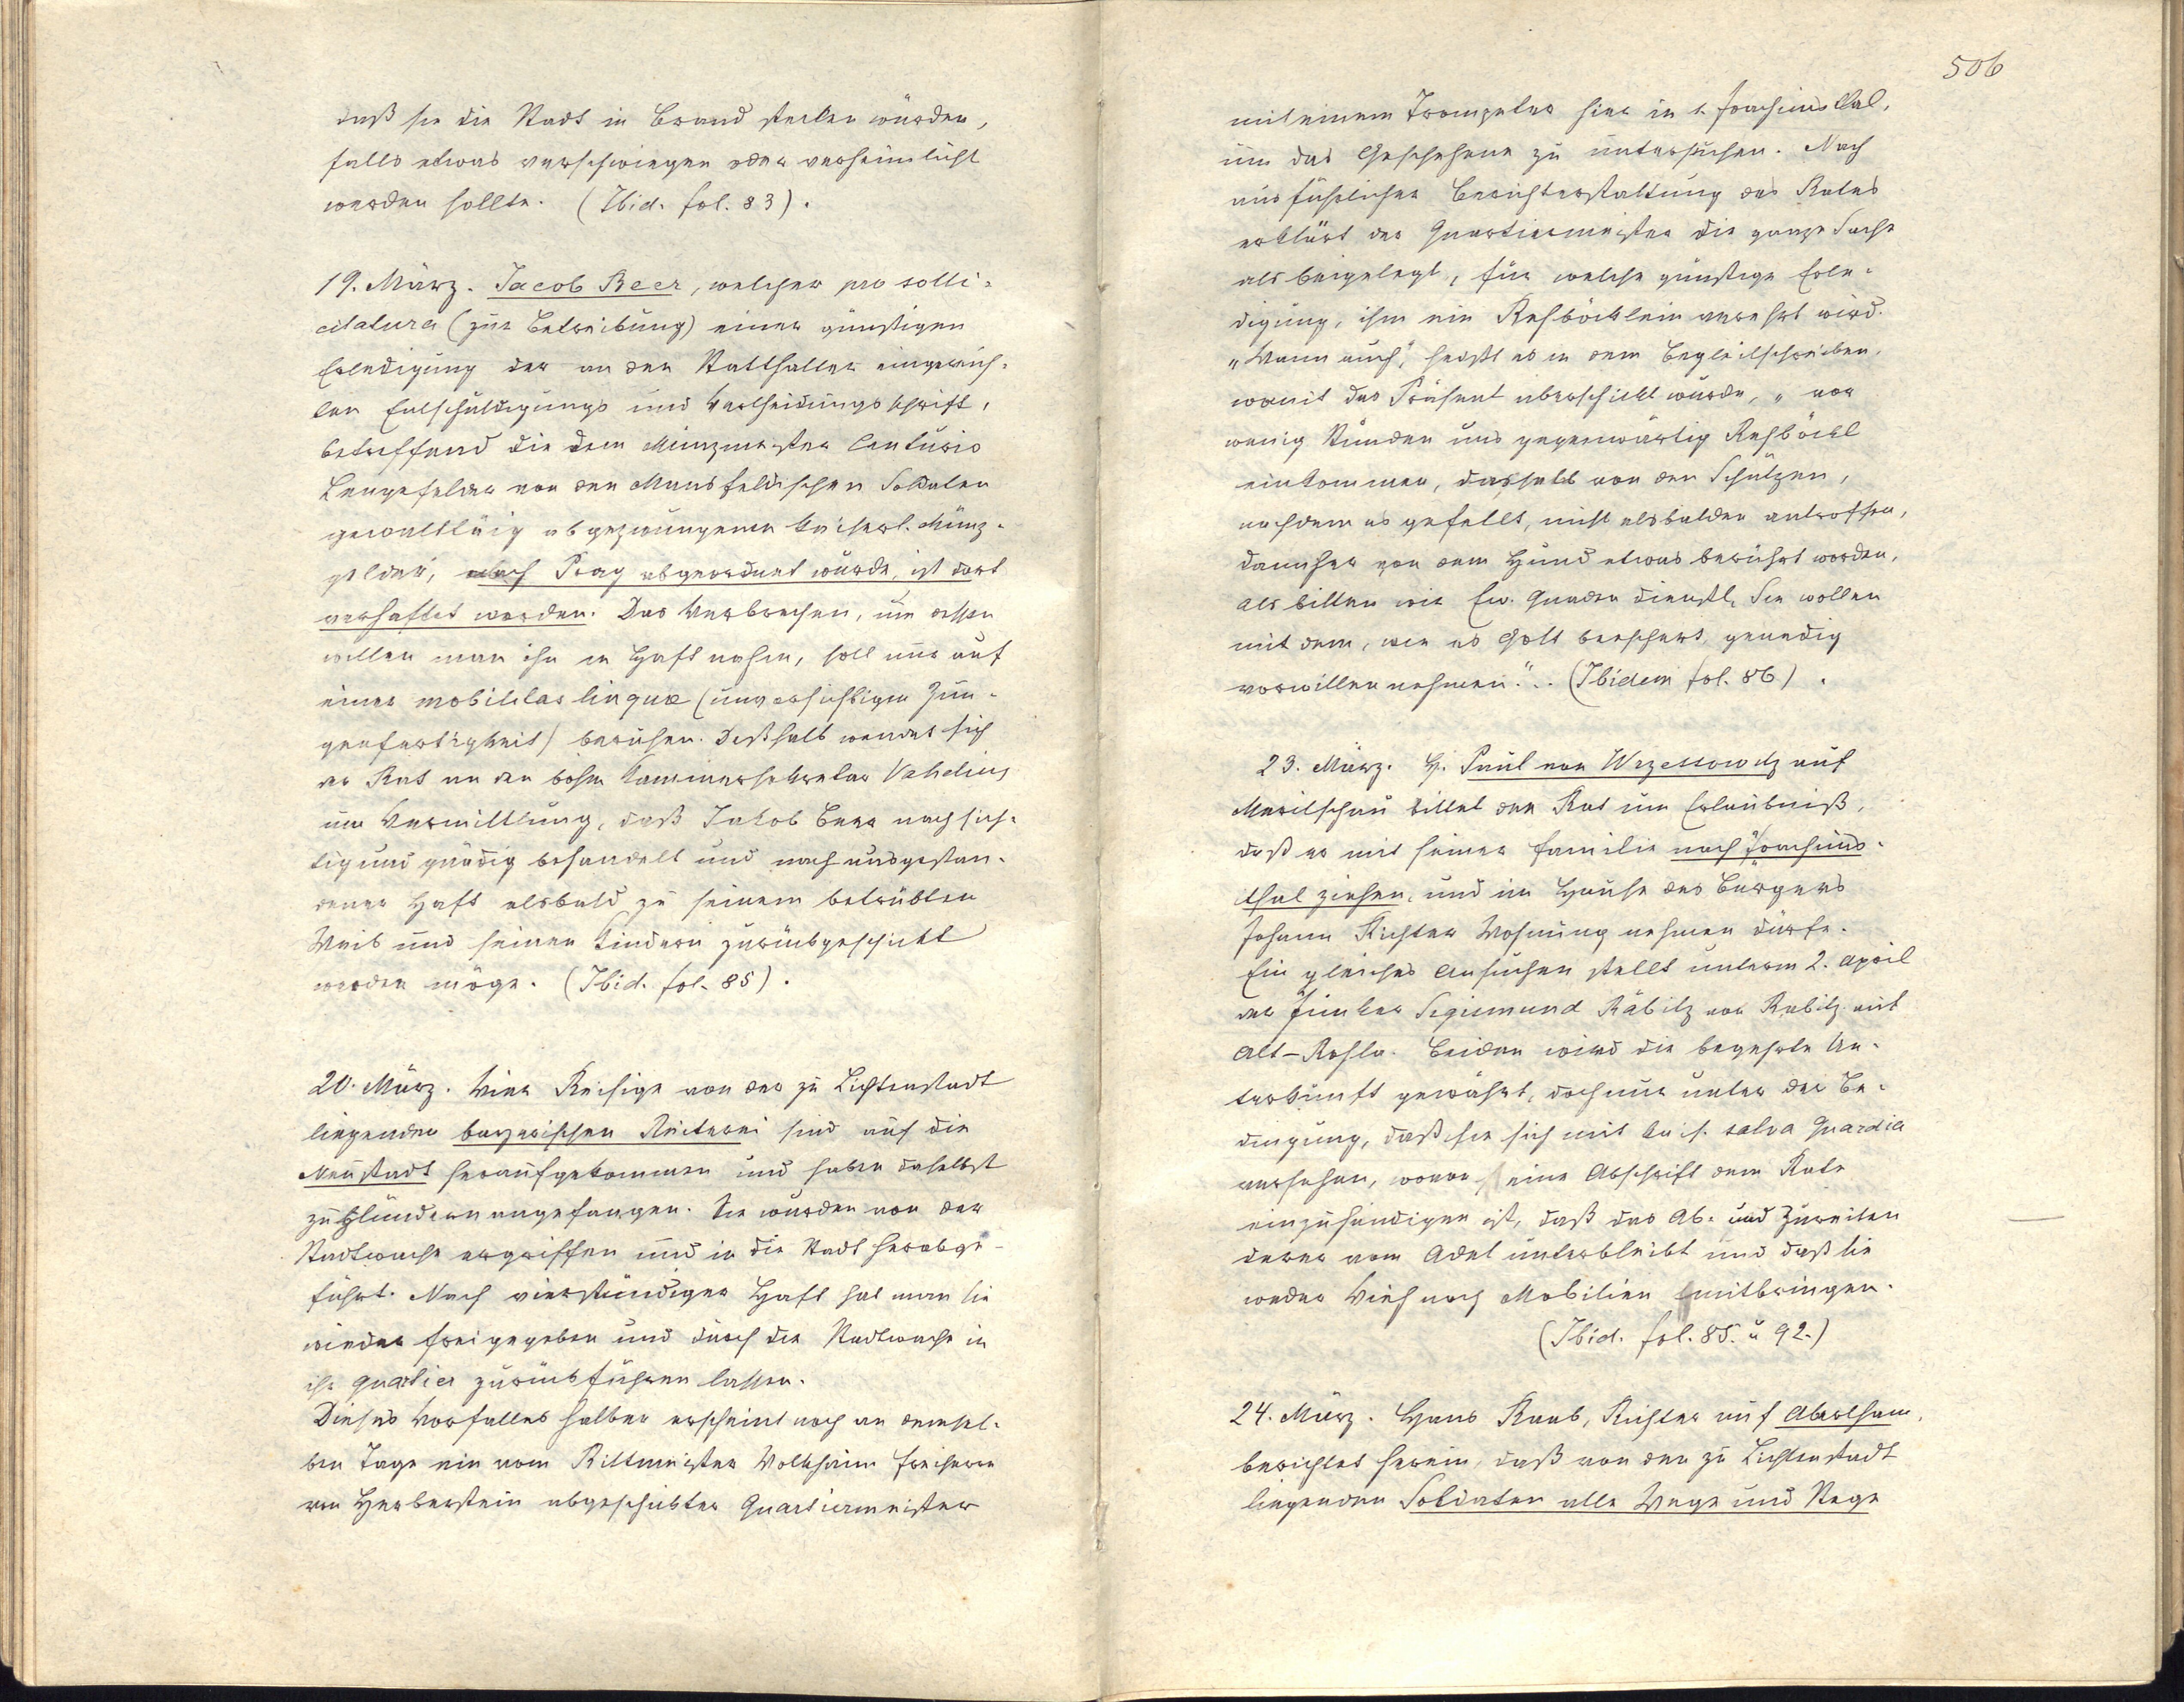 daß sie die Stadt in Brand stecken würden,
falls etwas verschwiegen oder verheimlicht
werden sollte. (Ibid. fol. 83).
19. März. Jacob Beer, welcher pro solli-
citatura (zur Betreibung) einer günstigen
Erledigung der an den Statthalter eingereich-
ten Entschuldigungs und Verteidigungsschrift,
betreffend die dem Münzmeister Centurio
Lengefelder von den Mansfeldischen Soldaten
gewalttätig abgezwungenen kaiserl. Münz-
gelder, nach Prag abgeordnet wurde, ist dort
verhaftet worden. Das Verbrechen, um dessen
willen man ihn in Haft nahm, soll nur auf
einer mobilitas linguæ (unvorsichtigen Zun-
genfertigkeit) beruhen. Deßhalb wendet sich
der Rat an den böhm Kammersekretär
um Vermittlung, daß Jakob Beer nachsich-
tig und gnädig behandelt und nach ausgestan-
dener Haft alsbald zu seinem betrübten
Weib und seinen Kindern zurückgeschickt
werden möge. (Ibid. fol. 85).
20. März. Vier Reisige von der zu Lichtenstadt
liegenden bayerischen Reiterei sind auf die
Neustadt heraufgekommen und haben daselbst
zu plündern angefangen. Sie wurden von der
Stadtwache ergriffen und in die Stadt herabge-
führt. Nach vierstündiger Haft hat man sie
wieder freigegeben und durch die Stadtwache in
ihr Quartier zurückführen lassen.
Dieses Vorfalles halber erscheint noch an demsel-
ben Tage ein vom Rittmeister Freiherrn
von Herberstein abgeschickter Quartiermeister
506
mit einem Trompeter hier in St. Joachimsthal,
um das Geschehene zu untersuchen. Nach
ausführlicher Berichterstattung des Rates
erklärt der Quartiermeister die ganze Sache
als beigelegt, für welche günstige Erle-
digung, ihm ein Rehböcklein verehrt wird.
„Wann auch", heißt es in dem Begleitschreiben,
womit das Präsent überschickt wurde, „vor
wenig Stunden uns gegenwärtig Rehböckl
einkommen, dasselb von den Schützen,
nachdem es gefellt, nicht alsbalden antroffen,
dannher von dem Hund etwas berührt worden,
als bitten wir Ew. Gnaden dienstl. Sie wollen
mit dem, wie es Gott bescheert genedig
vorwillen nehmen." .. (Ibidem fol. 86).
23. März. H. Paul von Wrzessowitz auf
bittet den Rat um Erlaubniß,
daß er mit seiner Familie nach Joachims-
thal ziehen, und im Hause des Bürgers
Johann Richter Wohnung nehmen dürfe.
Ein gleiches Ansuchen stellt unterm 2. April
der Junker Sigismund Räbitz von Rabitz auf
Alt-Rohlau. Beiden wird die begehrte Un-
terkunft gewährt, doch nur unter der Be-
dingung, daß sie sich mit kais. salva Guardia
versehen, wovon eine Abschrift dem Rate
einzuhändigen ist, daß das Ab- und Zureiten
derer vom Adel unterbleibt und daß sie
weder Vieh noch Mobilien mitbringen.
(Ibid. fol. 85. u 92.)
24. März. Hans Raab, Richter auf Abertham,
berichtet herein, daß von den zu Lichtenstadt
liegenden Soldaten alle Wege und Stege